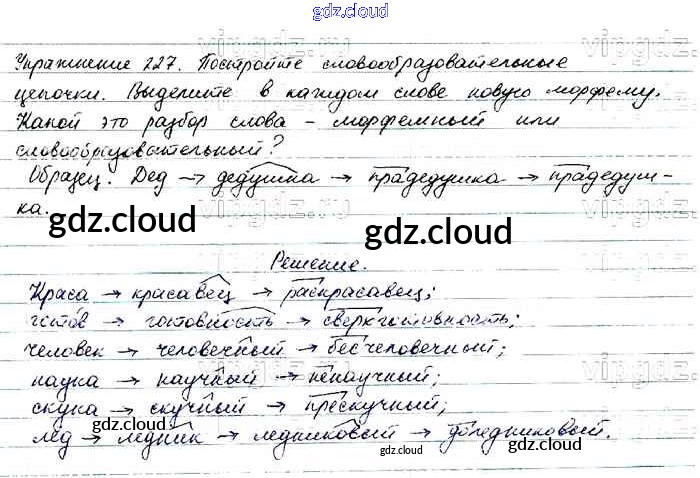 gdz.cloud
Упражнение 227. Постройте словообразовательные
цепочки. Выделите в каждом слове новую морфему.
Какой это разбор слова – морфемный или
словообразовательный?
Образец. Дед → дедушка → прадедушка → прадедуш-
ка.
gdz.cloud gdz.cloud
Решение.
Краса → красавец → раскрасавец;
готов → готовность → сверхготовность;
человек → человечный → бесчеловечный;
наука → научный → ненаучный;
скука → скучный → прескучный;
gdz.cloud gdz.cloud
лёд → ледник → ледниковый → доледниковый.
gdz.cloud
vipgdz.ru